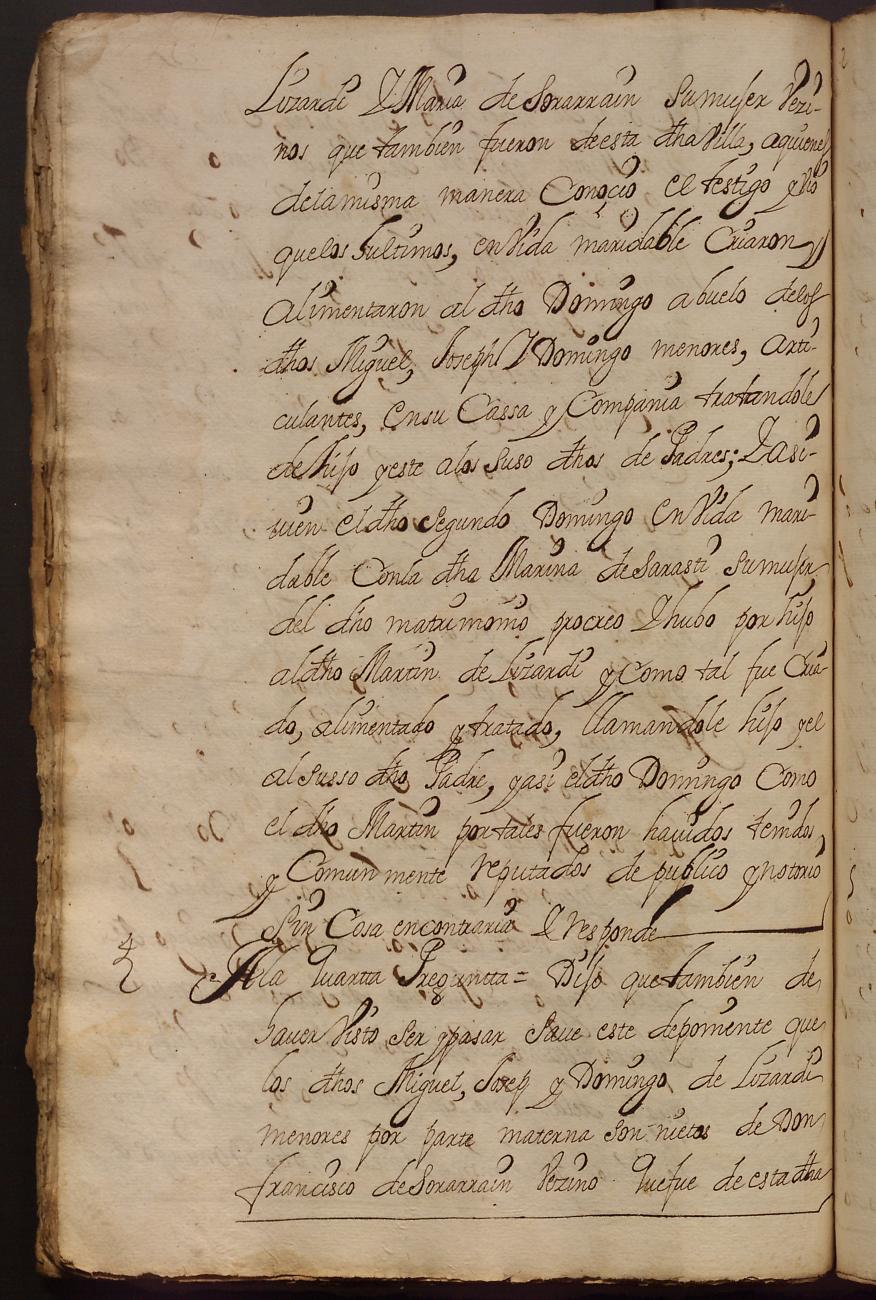 Lizardi Y Maria de Sorarrain su muger Vezi-
nos que tambien fueron de esta dha Villa, aquienes
dela misma manera Conoçio el testigo y vio
que los hultimos, en Vida maridable Criaron y
alimentaron al dho Domingo abuelo delos
dhos Miguel, Joseph Y Domingo menores, arti-
culantes, en su Cassa y Compania tratandole
de hijo y este alos suso dhos de Padres; Y asi-
mien el dho segundo Domingo en Vida mari-
dable Conla dha Marina de Sarasti su muger,
del dho matrimonio procreo Y hubo por hijo
al dho Martin de Lizardi y Como tal fue Cria-
do, alimentado y tratado, llamandole hijo y el
al susso dho Padre, y asi el dho Domingo Como
el dho Martin por tales fueron hauidos tenidos,
y Comun mente reputados de publico y notorio
sin Cosa en contrario Y responde
4 A la quartta Preguntta = Dijo que tambien de
hauer Visto ser y pasar saue este deponiente que
los dhos Miguel, Josep y Domingo de Lizardi
menores por parte materna son nietos de Don
francisco de Sorarrain Vezino que fue de esta dha